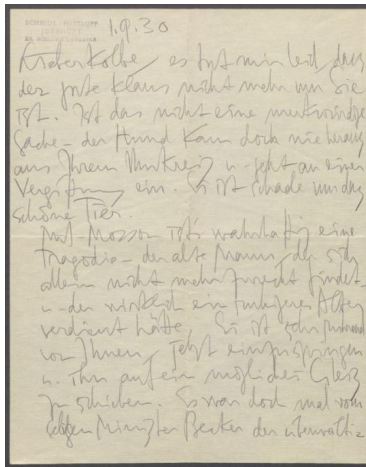 SCHMIDT-ROTTLUFF
1.9.30
Lieber Kolbe, es tut mir leid, dass
der gute Klaus nicht mehr um Sie
ist. Ist das nicht eine merkwürdige
Sache – der Hund kam doch nie heraus
aus Ihrem Umkreis u. geht an einer
Vergiftung ein. Es ist schade um das
schöne Tier.
Mit Mosson ist's wahrhaftig eine
Tragödie – der alte Mann, der sich
allein nicht mehr zurecht findet –
u. der wirklich ein ruhiges Alter
verdient hätte. Es ist sehr
von Ihnen, jetzt einzuspringen
u. ihn auf ein mögliches Gleis
zu schieben. Es war doch mal vom
Minister Becker der